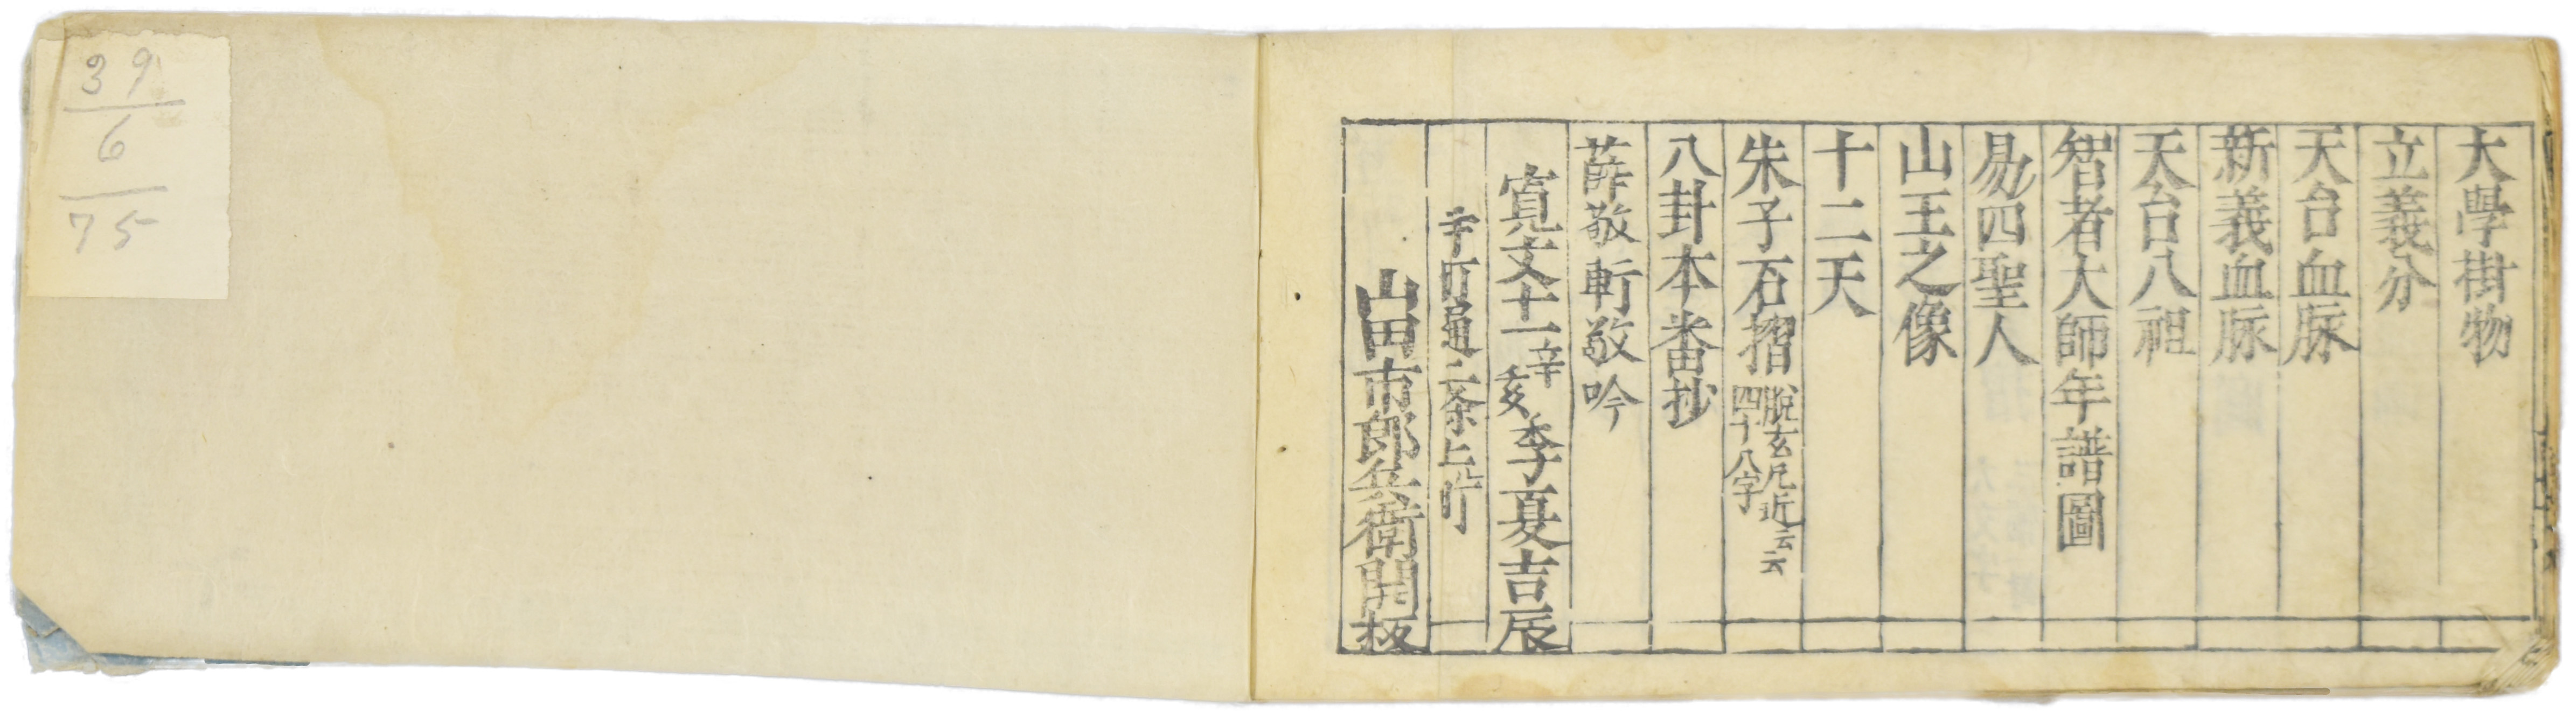 大學掛物
立義分
天台血脉
新義血脉
天台八祖
智者大師年譜圖
易四聖人
山王之像
十二天
朱子石摺 脫玄凡近云云 四十八字
八卦本番抄
薛敬軒敬吟
寬文十一辛亥季夏吉辰
寺町通二条上ル町
山田市郎兵衛開板
39
6
75